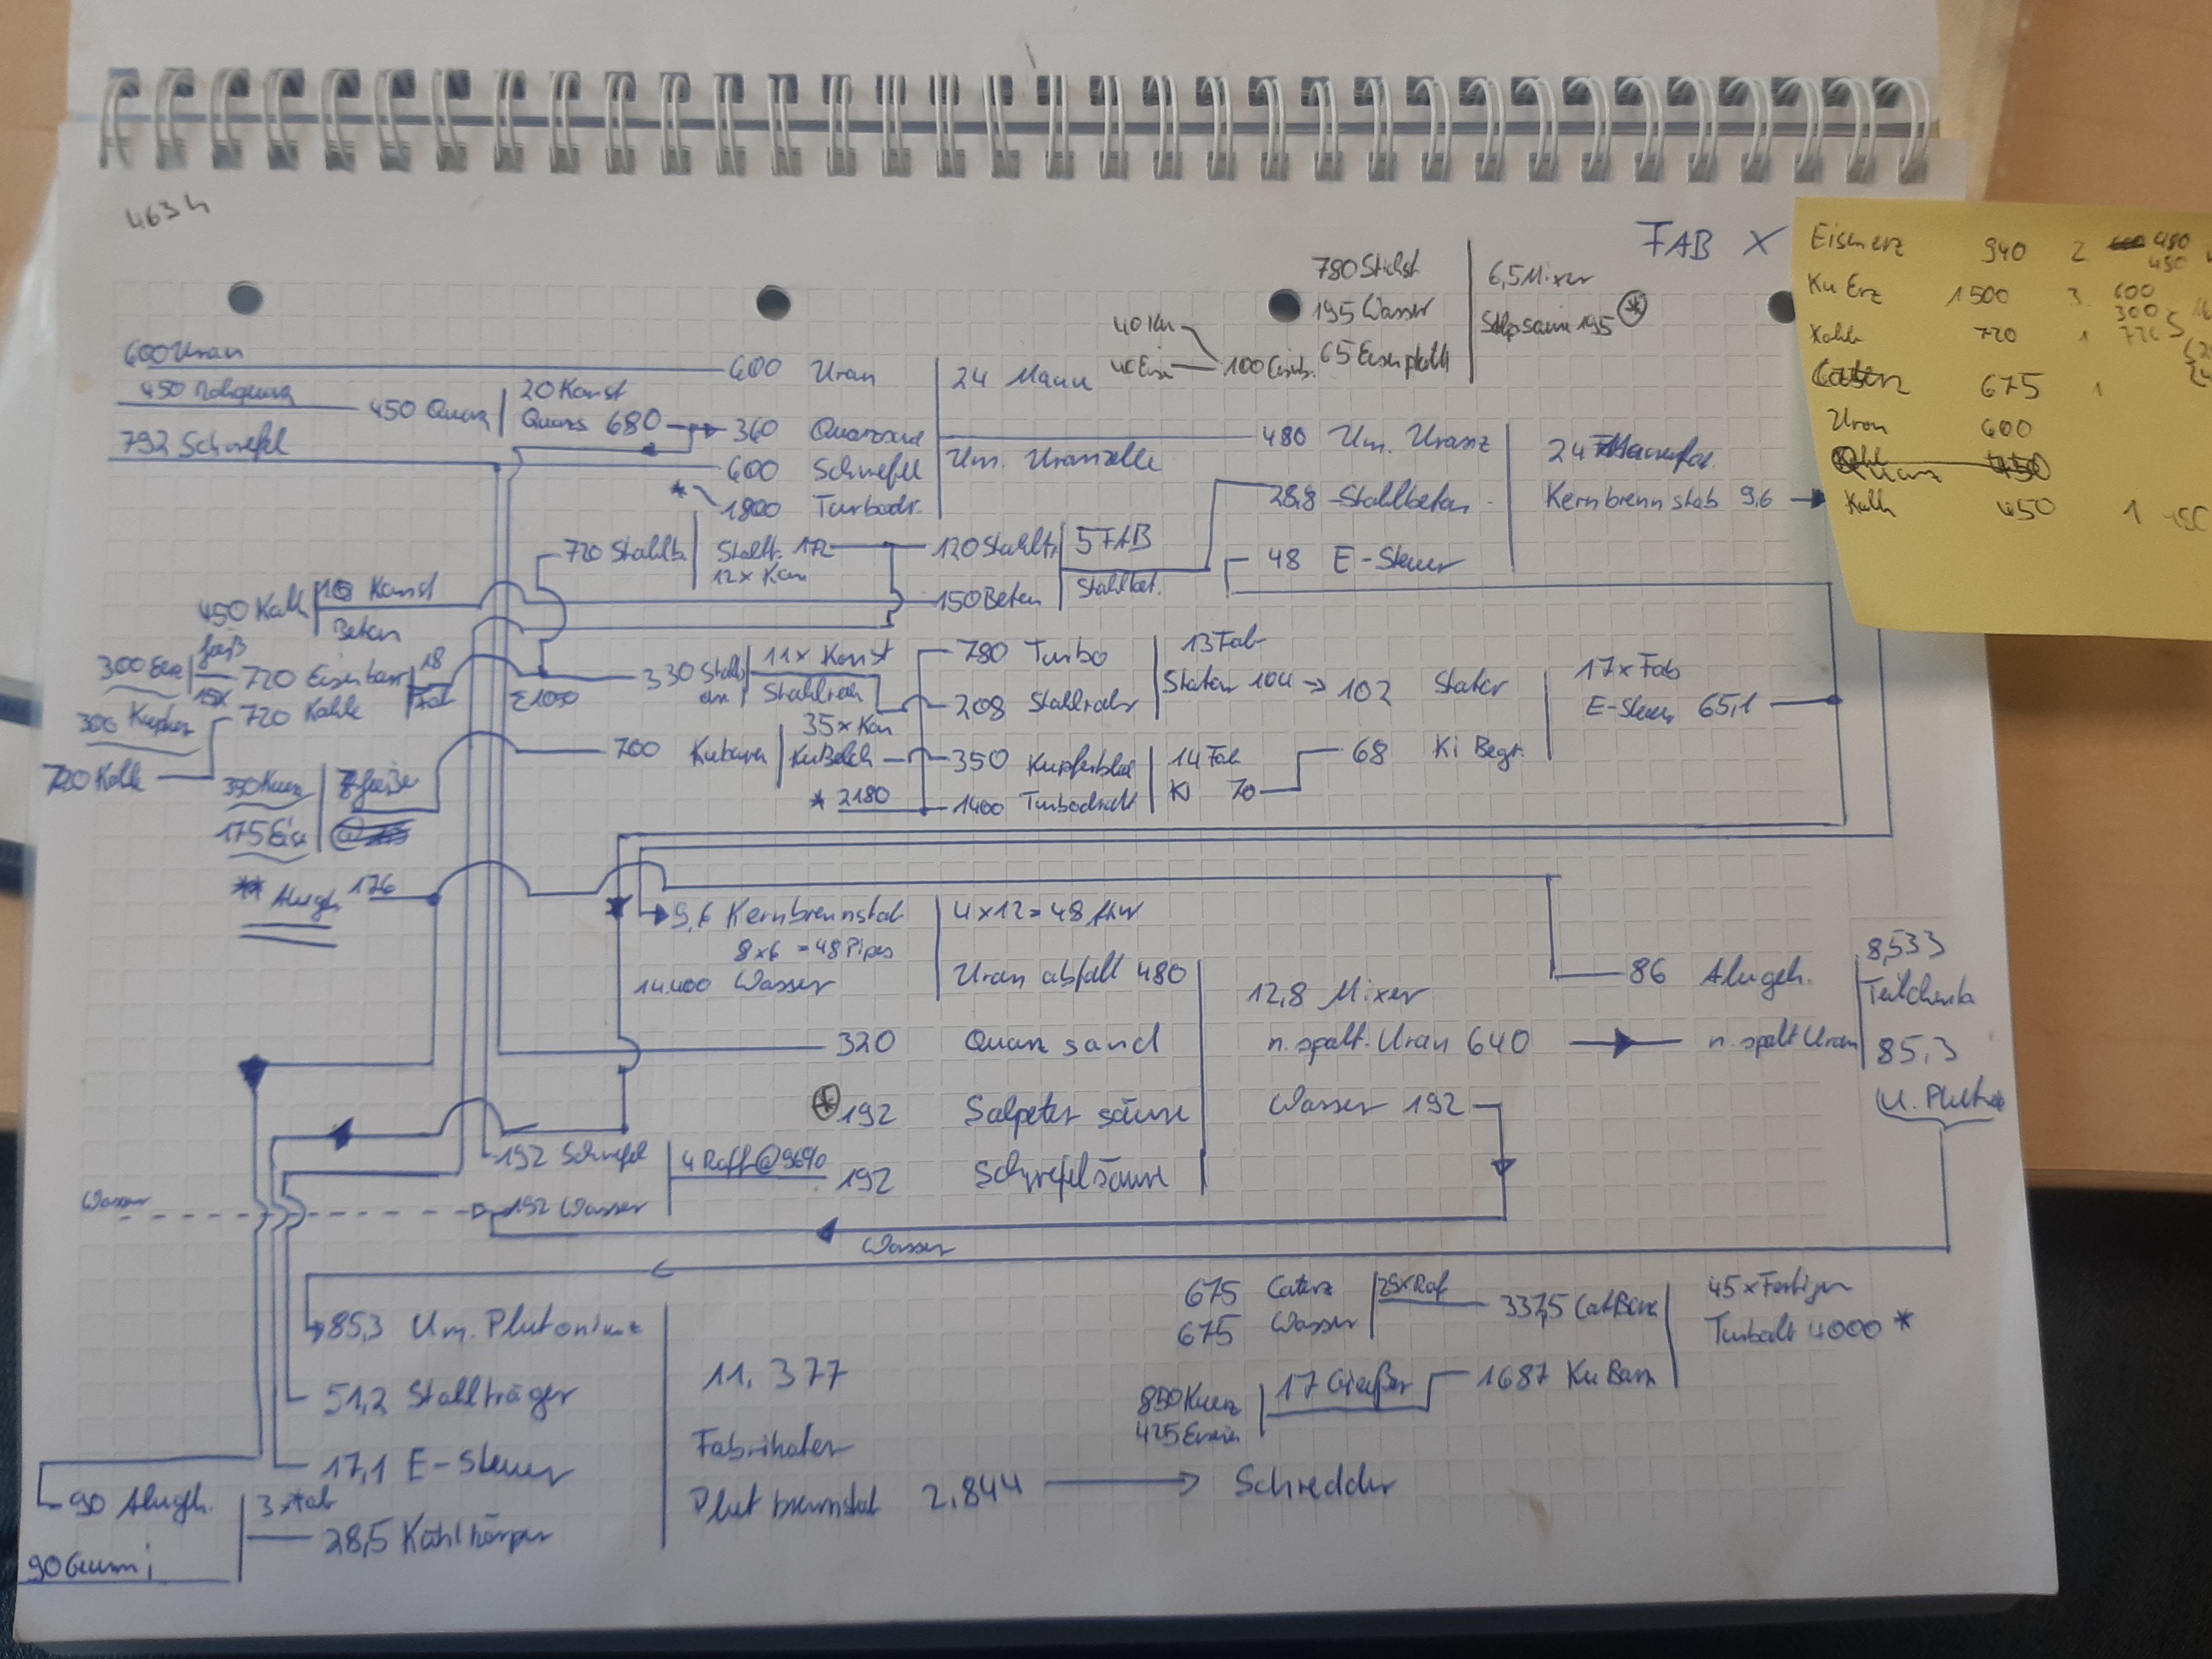 4634
FAB X
780 Stickst
195 Wasser
65 Eisenplatt
6,5 Mixer
195 *
40 Ku
40 Eise
100 Eisenb.
Eisenerz 940 2 480
480
Ku Erz 1500 3 600
300
Kohle 720 1 720
Caterz 675 1
Uran 600
Kalk 450 1
600 Uran
600 Uran
24 Manu
Um. Uranzelle
450 Rohquarz
450 Quarz
20 Konst
Quarzs 680
360 Quarzsand
792 Schwefel
600 Schwefel
* 1800 Turbodr.
480 Um. Uranz
28,8 Stahlbeton
48 E-Steuer
24 Manufak.
Kernbrennstab 9,6
720 Stahlb.
Stahlt. 172
12x Kon
120 Stahltr
150 Beton
5 FAB
Stahlbet.
450 Kalk
10 Konst
Beton
300 Eise
300 Kupfer
gieß
15x
720 Eisenbarr
720 Kohle
18
Fab
Σ1050
720 Kohle
330 Stahl
11x Konst
Stahlrohr
780 Turbo
208 Stahlrohr
13 Fab
Stator 104
102 Stator
17x Fab
E-Steu 65,1
350 Kuerz
175 Eise
7 gießer
700 Kubarren
35x Kon
KuBlech
350 Kupferblec
* 2180
1400 Turbodraht
14 Fab
KI 70
68 Ki Begr.
** Alugeh 176
9,6 Kernbrennstab
8x6 = 48 Pipes
14.400 Wasser
4x12=48 AKW
Uran abfall 480
320 Quarz sand
* 192 Salpeter säure
192 Schwefelsäure
12,8 Mixer
n. spalt. Uran 640
Wasser 192
86 Alugeh.
n. spalt Uran
8,533
Teilchenb
85,3
192 Schwefel
192 Wasser
4 Raff@96%
Wasser
Wasser
85,3 Um. Plutoniumz
51,2 Stahlträger
17,1 E-Steuer
28,5 Kühlkörper
90 Alugeh.
90 Gummi
3 x Fab
11,377
Fabrikaten
Plut brennstab 2,844
Schredder
675 Caterz
675 Wasser
337,5 CatBarr
850 Kuerz
425 Eisen
17 Gießer
1687 KuBarr
45 x Fertiger
Turbodr 4000 *